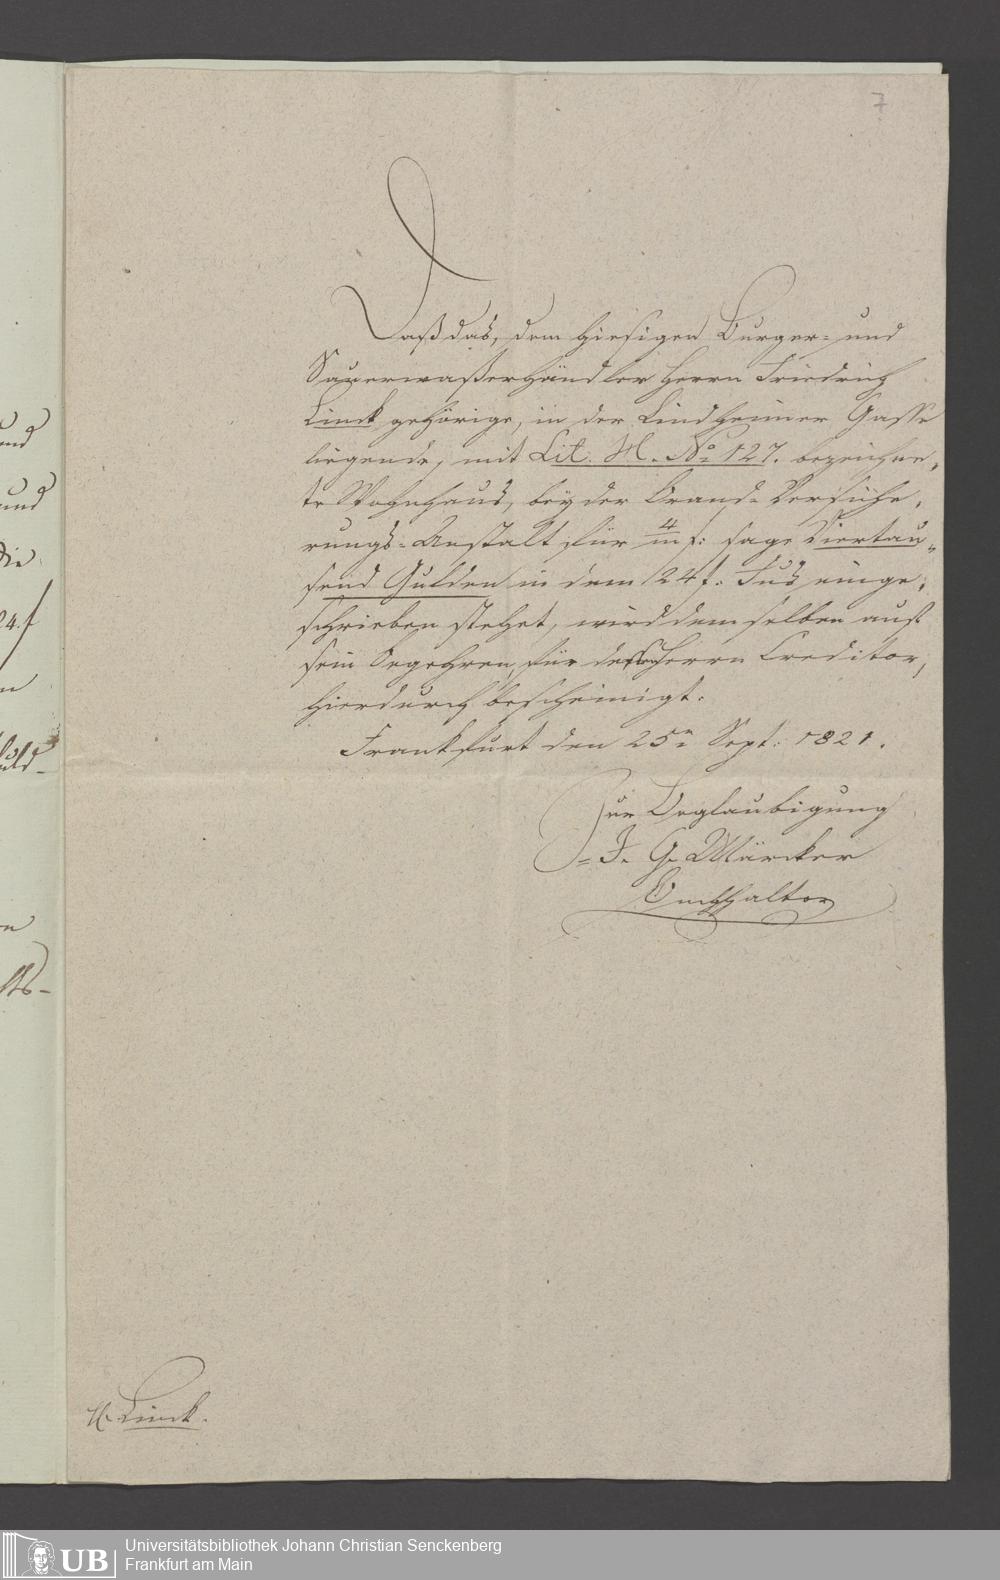 7
Daß das, dem hiesigen Burger- und
Sauerwaßerhändler Herrn Friedrich
Linck gehörige, in der Lindheimer Gasse
liegende, mit Lit. H. No 127. bezeichne,
te Wohnhaus, bey der Brand-Versiche,
rungs-Anstalt für 4/m f: sage Viertau„
send Gulden in dem 24 f. Fus einge,
schrieben stehet, wird demselben auf
sein Begehren, für dessen Herrn Creditor,
hierdurch bescheinigt.
Frankfurt den 25n Sept: 1821.
Zur Beglaubigung
J. G. Märcker
Buchhalter
H. Linck.
und
und
die
24.f
n
n
UB
Universitätsbibliothek Johann Christian Senckenberg
Frankfurt am Main